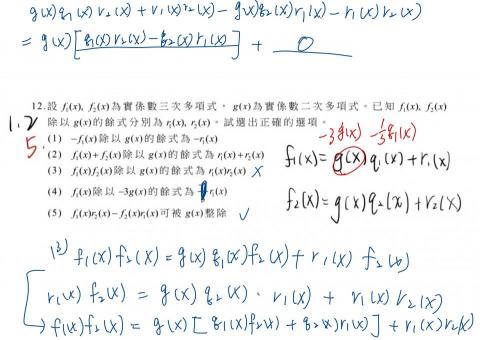 g(x)q₁(x)r₂(x)+r₁(x)r₂(x)-g(x)q₂(x)r₁(x)-r₁(x)r₂(x)
=g(x)[q₁(x)r₂(x)-q₂(x)r₁(x)] + 0
12.設 f₁(x), f₂(x)為實係數三次多項式，g(x)為實係數二次多項式。已知 f₁(x), f₂(x)
1.2
除以 g(x)的餘式分別為 r₁(x), r₂(x)。試選出正確的選項。
5.
-3g(x) -⅓q₁(x)
(1) -f₁(x)除以 g(x)的餘式為-r₁(x)
(2) f₁(x)+f₂(x)除以 g(x)的餘式為 r₁(x)+r₂(x)
f₁(x)=g(x)q₁(x)+r₁(x)
(3) f₁(x)f₂(x)除以 g(x)的餘式為 r₁(x)r₂(x) X
(4) f₁(x)除以-3g(x)的餘式為 r₁(x)
f₂(x)=g(x)q₂(x)+r₂(x)
(5) f₁(x)r₂(x)-f₂(x)r₁(x)可被 g(x)整除 ✓
(3) f₁(x)f₂(x)=g(x)q₁(x)f₂(x)+r₁(x)f₂(x)
r₁(x)f₂(x)=g(x)q₂(x)·r₁(x)+r₁(x)r₂(x)
→f₁(x)f₂(x)=g(x)[q₁(x)f₂(x)+q₂(x)r₁(x)]+r₁(x)r₂(x)